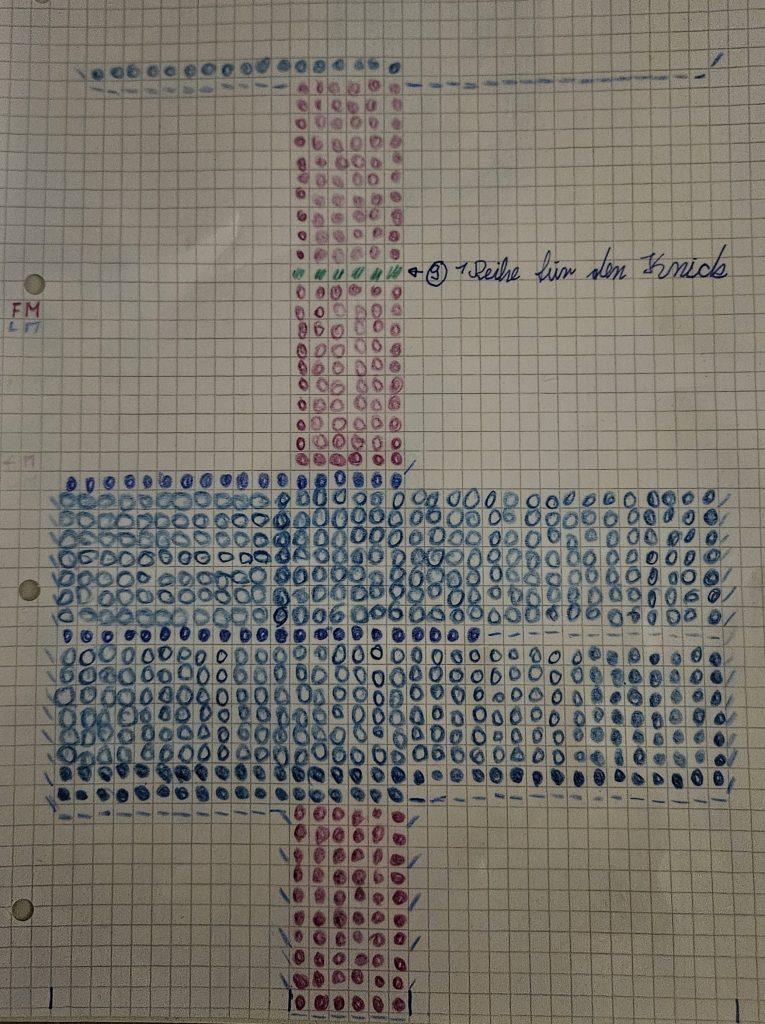 ← ③ 1 Reihe für den Knick
FM
LM